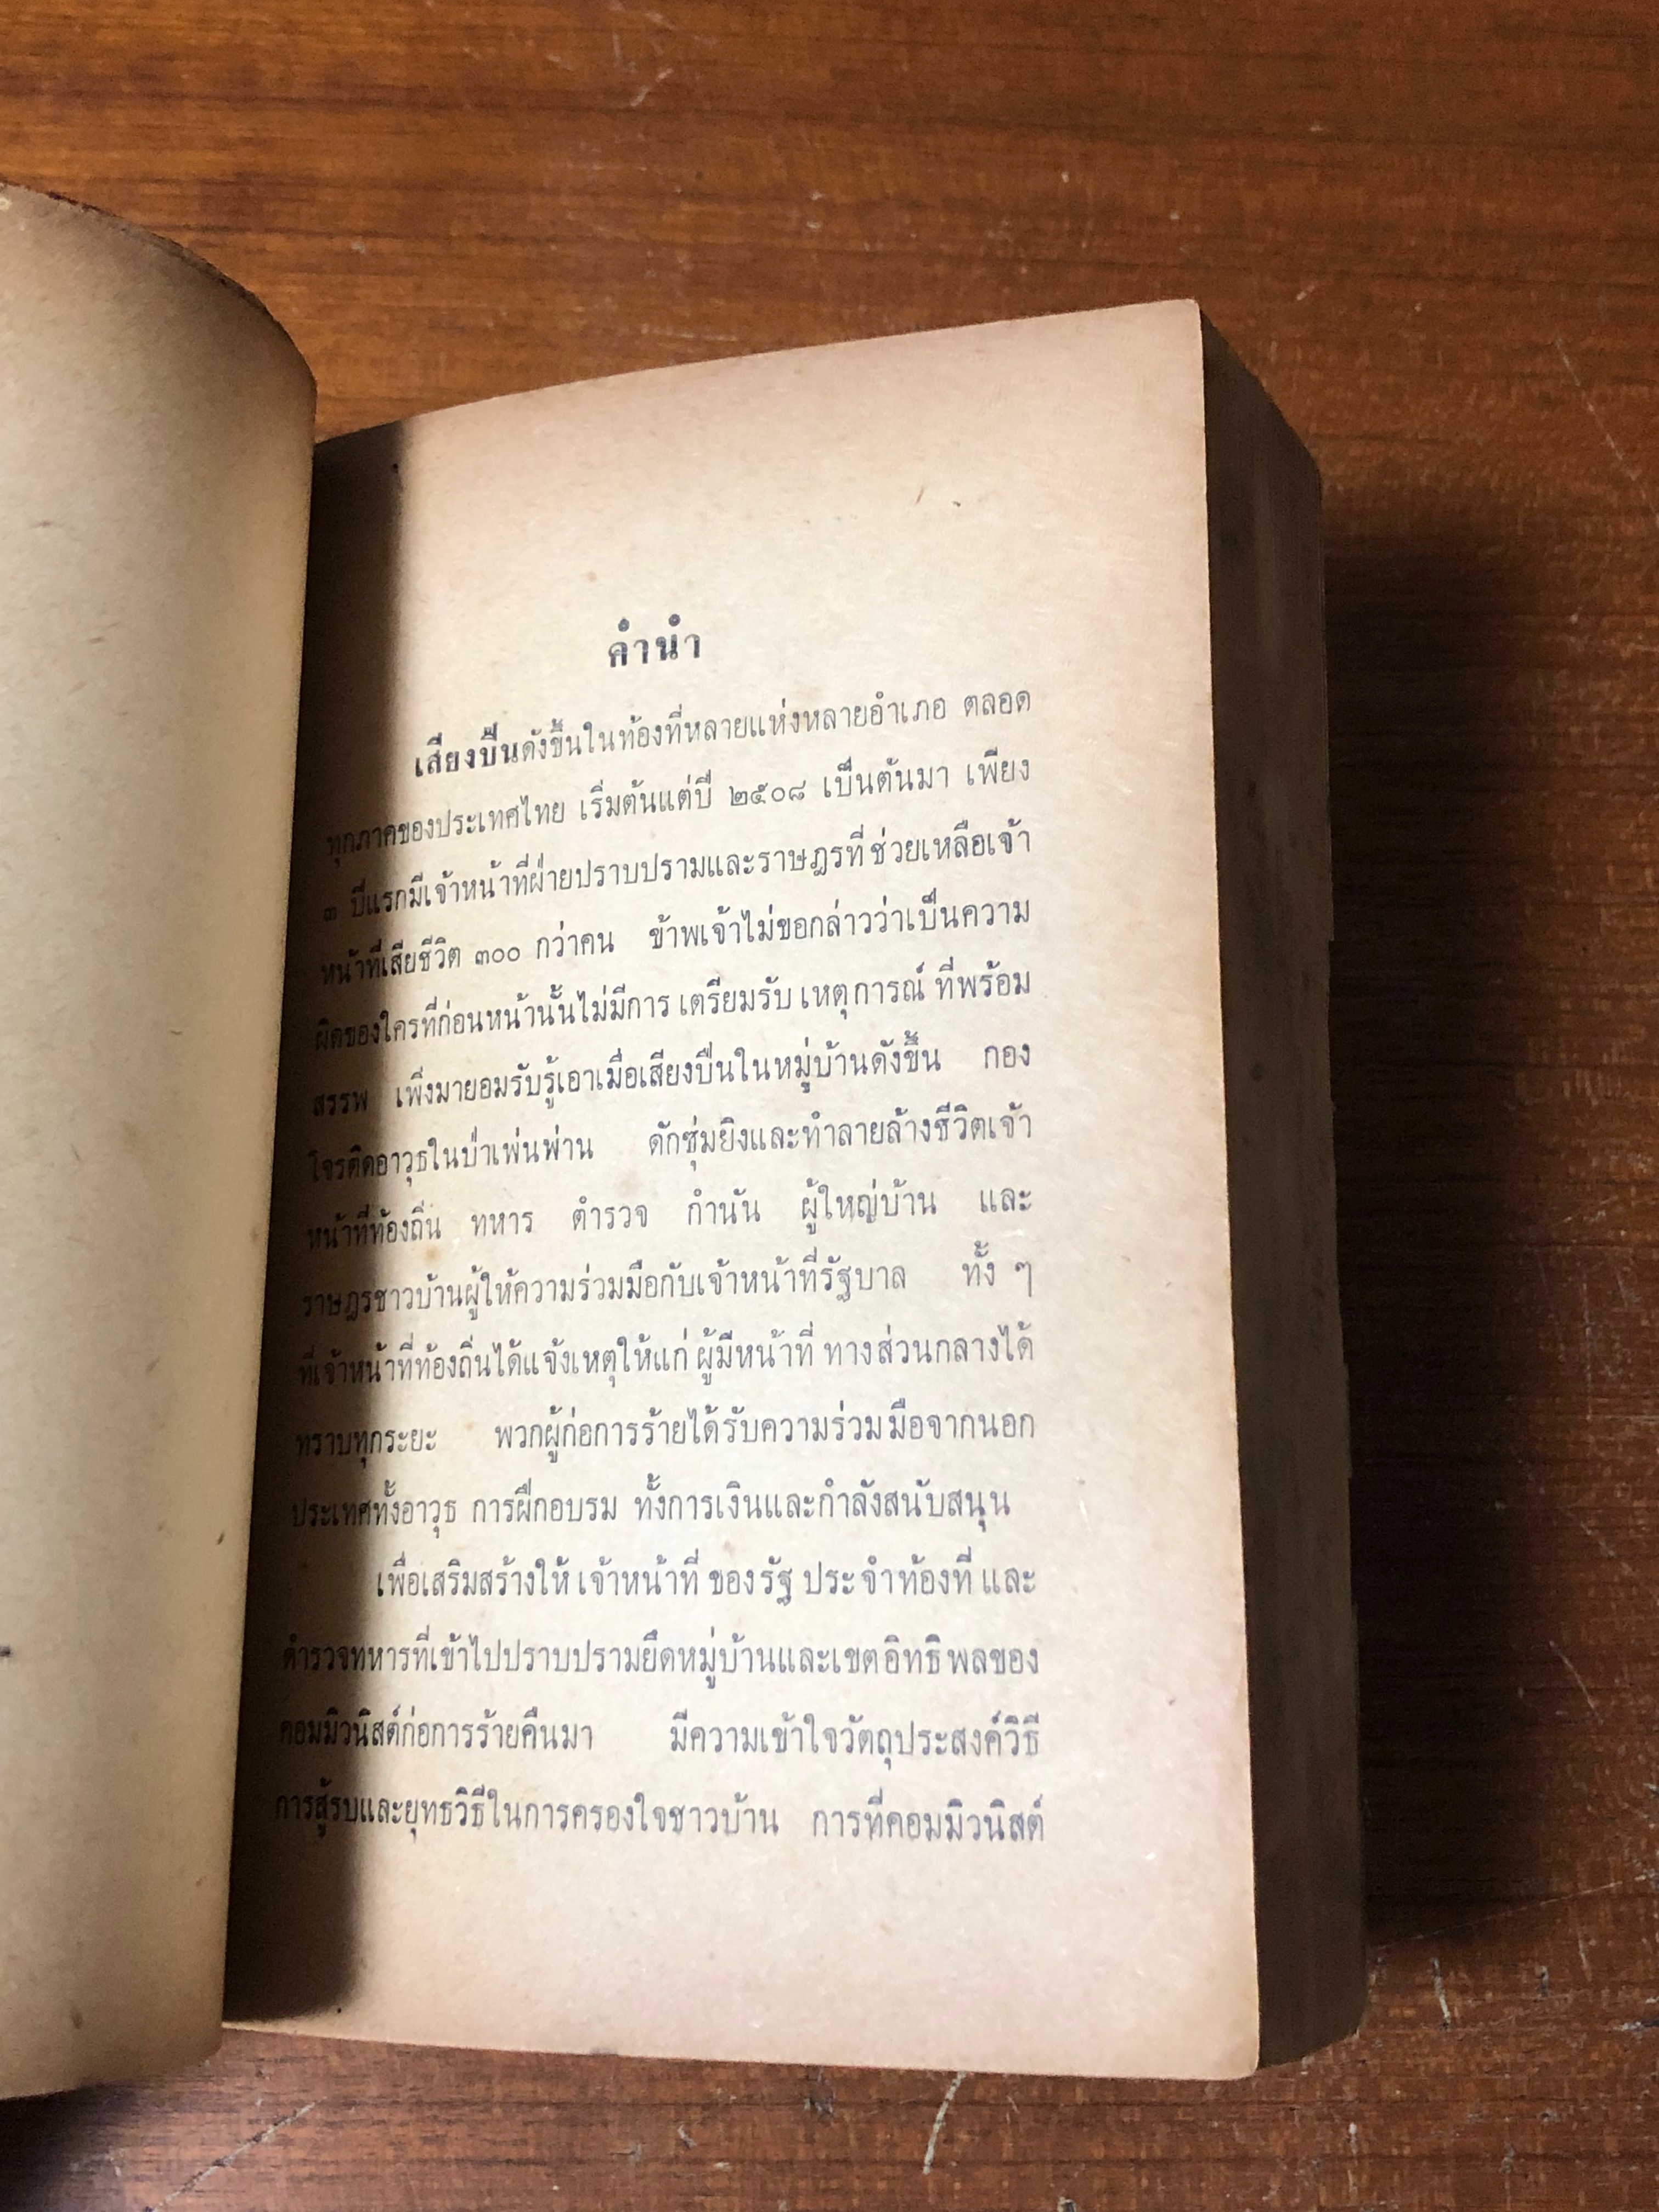 คำนำ
เสียงปืนดังขึ้นในท้องที่หลายแห่งหลายอำเภอ ตลอด
ทุกภาคของประเทศไทย เริ่มต้นแต่ปี ๒๕๐๘ เป็นต้นมา เพียง
๓ ปีแรกมีเจ้าหน้าที่ฝ่ายปราบปรามและราษฎรที่ช่วยเหลือเจ้า
หน้าที่เสียชีวิต ๓๐๐ กว่าคน ข้าพเจ้าไม่ขอกล่าวว่าเป็นความ
ผิดของใครที่ก่อนหน้านั้นไม่มีการ เตรียมรับ เหตุการณ์ ที่พร้อม
สรรพ เพิ่งมายอมรับรู้เอาเมื่อเสียงปืนในหมู่บ้านดังขึ้น กอง
โจรติดอาวุธในป่าเพ่นพ่าน ดักซุ่มยิงและทำลายล้างชีวิตเจ้า
หน้าที่ท้องถิ่น ทหาร ตำรวจ กำนัน ผู้ใหญ่บ้าน และ
ราษฎรชาวบ้านผู้ให้ความร่วมมือกับเจ้าหน้าที่รัฐบาล ทั้ง ๆ
ที่เจ้าหน้าที่ท้องถิ่นได้แจ้งเหตุให้แก่ ผู้มีหน้าที่ ทางส่วนกลางได้
ทราบทุกระยะ พวกผู้ก่อการร้ายได้รับความร่วมมือจากนอก
ประเทศทั้งอาวุธ การฝึกอบรม ทั้งการเงินและกำลังสนับสนุน
เพื่อเสริมสร้างให้ เจ้าหน้าที่ ของรัฐ ประจำท้องที่ และ
ตำรวจทหารที่เข้าไปปราบปรามยึดหมู่บ้านและเขตอิทธิพลของ
คอมมิวนิสต์ก่อการร้ายคืนมา มีความเข้าใจวัตถุประสงค์วิธี
การสู้รบและยุทธวิธีในการครองใจชาวบ้าน การที่คอมมิวนิสต์